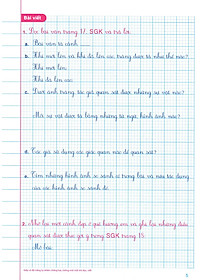 Bài viết
1. Đọc bài văn trang 17, SGK và trả lời.
a. Bài văn tả cảnh
b. Khi mới lên và khi đã lên cao, trăng được tả như thế nào?
Khi mới lên:
Khi đã lên cao:
c. Dưới ánh trăng tác giả quan sát được những sự vật nào?
Mỗi sự vật được tả bằng những từ ngữ, hình ảnh nào?
d. Tác giả sử dụng các giác quan nào để quan sát?
e. Tìm những hình ảnh so sánh có trong bài và nêu tác dụng của các hình ảnh so sánh đó.
2. Nhớ lại một cảnh đẹp ở quê hương em và ghi lại những điều quan sát được theo gợi ý trong SGK trang 15.
Mở bài:
5